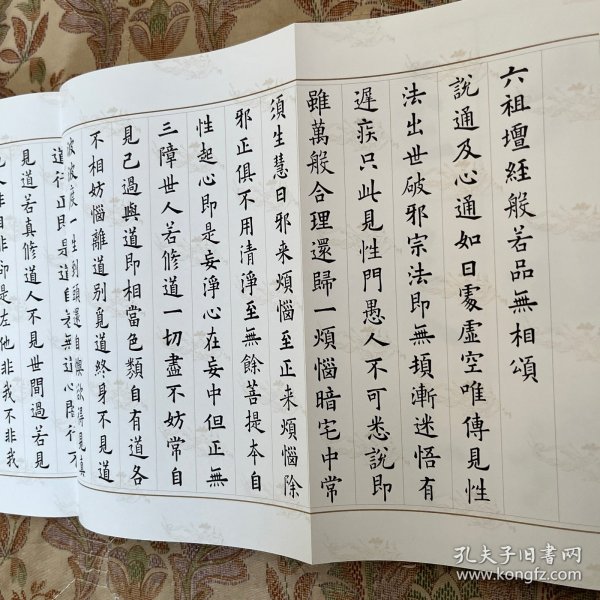 六祖壇經般若品無相頌
說通及心通如日處虛空唯傳見性
法出世破邪宗法即無頓漸迷悟有
遲疾只此見性門愚人不可悉說即
雖萬般合理還歸一煩惱暗宅中常
須生慧日邪来煩惱至正来煩惱除
邪正俱不用清淨至無餘菩提本自
性起心即是妄淨心在妄中但正無
三障世人若修道一切盡不妨常自
見己過與道即相當色類自有道各
不相妨惱離道别覓道終身不見道
波波度一生到頭還自懊欲得見真
道行正即是道自若無道心闇行不
見道若真修道人不見世間過若見
他人非自非卻是左他非我不非我
孔夫子旧書网
www.kongfz.com